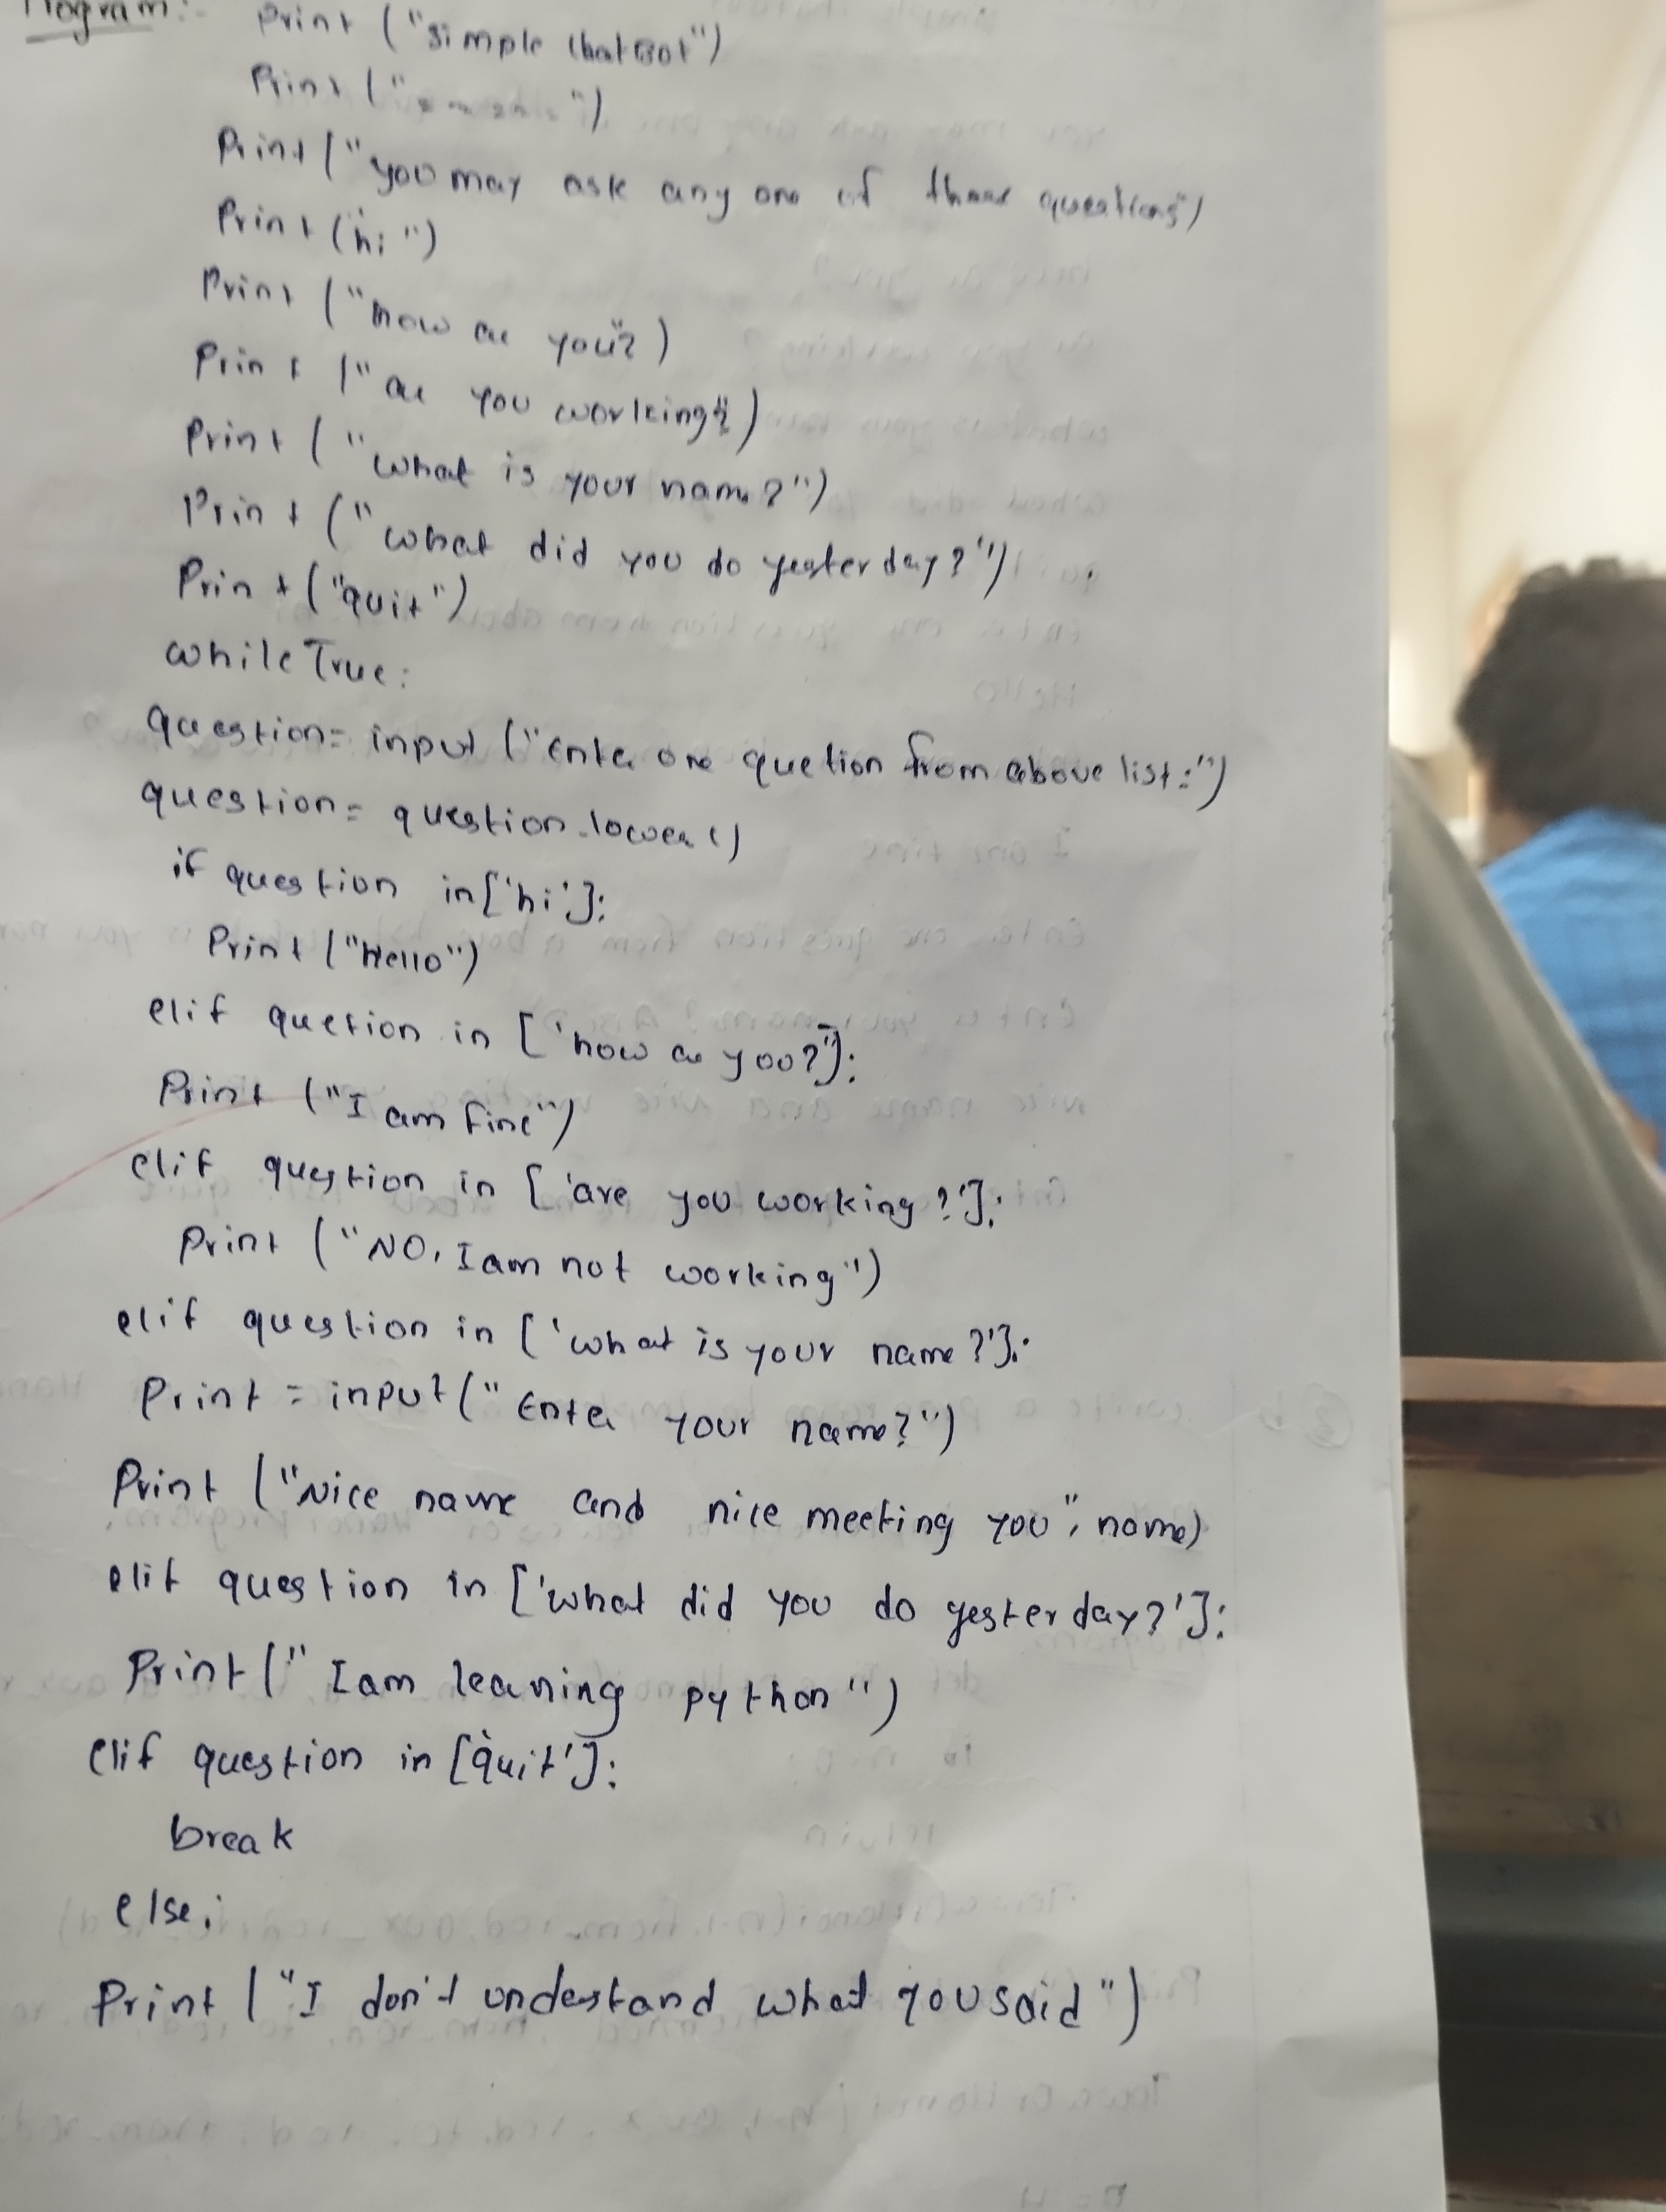 Program:- Print ("simple ChatBot")
Print (" ")
Print ("you may ask any one of these questions")
Print ("hi")
Print ("how are you"?)
Print ("are you working"?)
Print ("what is your name?")
Print ("what did you do yesterday?")
Print ("quit")
while True:
question= input ("Enter one quetion from above list:")
question= question.lower()
if question in['hi']:
Print ("Hello")
elif question in ['how are you?']:
Print ("I am fine")
elif question in ['are you working?']:
Print ("NO, I am not working")
elif question in ['what is your name?']:
Print = input ("Enter your name?")
Print ("Nice name and nice meeting you", name)
elif question in ['what did you do yesterday?']:
Print (" I am learning python")
elif question in ['quit']:
break
else:
Print ("I don't understand what you said")